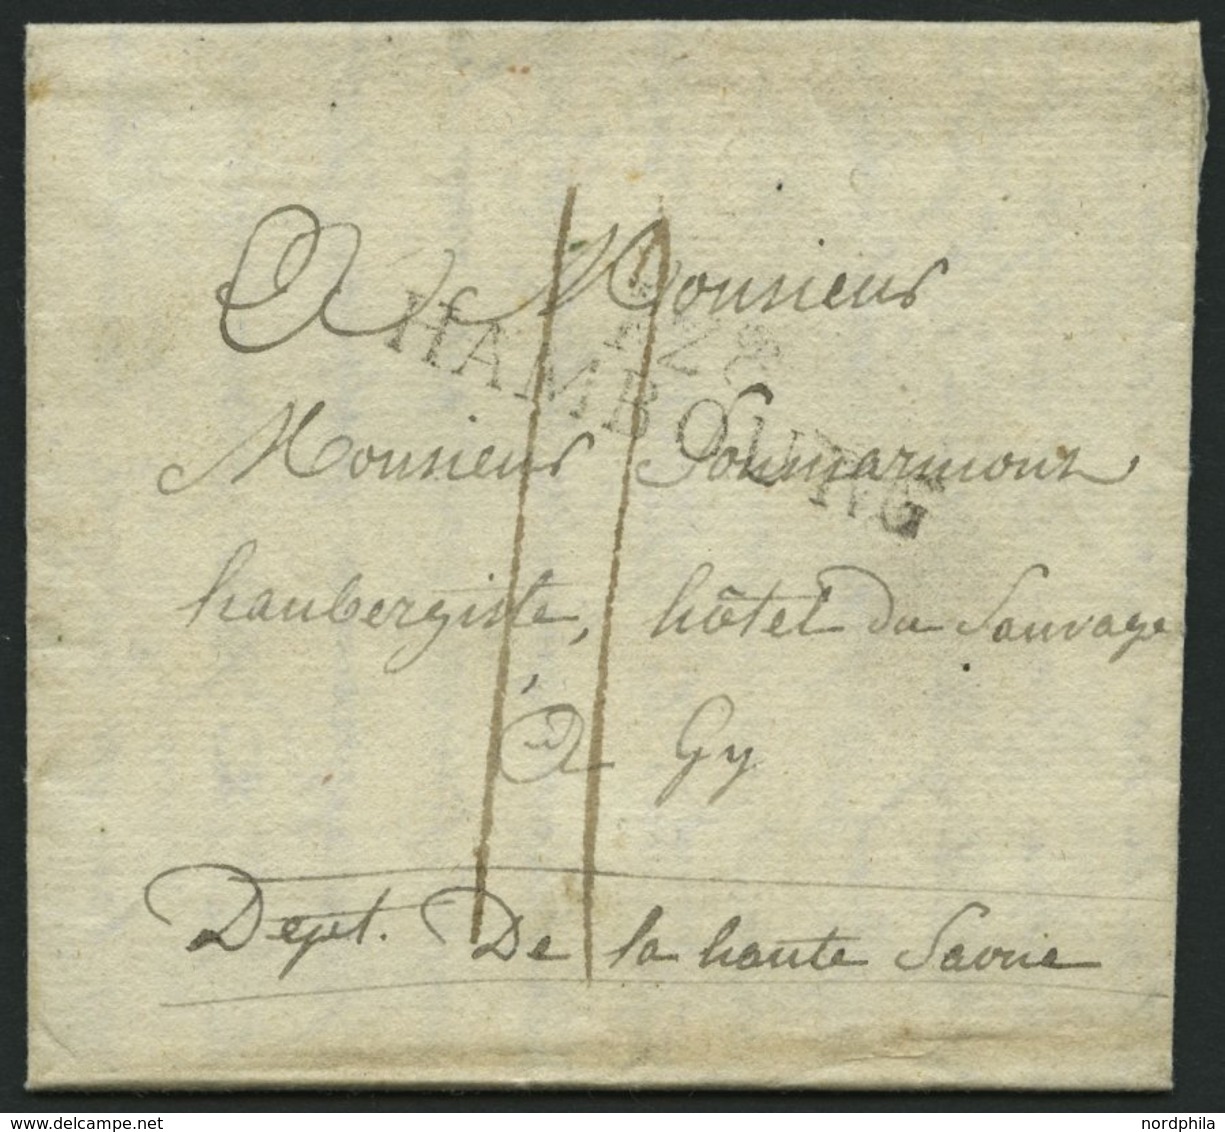 A Monsieur
128
HAMBOURG
Monsieur Sonmarmont
haubergiste, hôtel du Sauvage
à Gy
Dept. De la haute Saone
nordphila